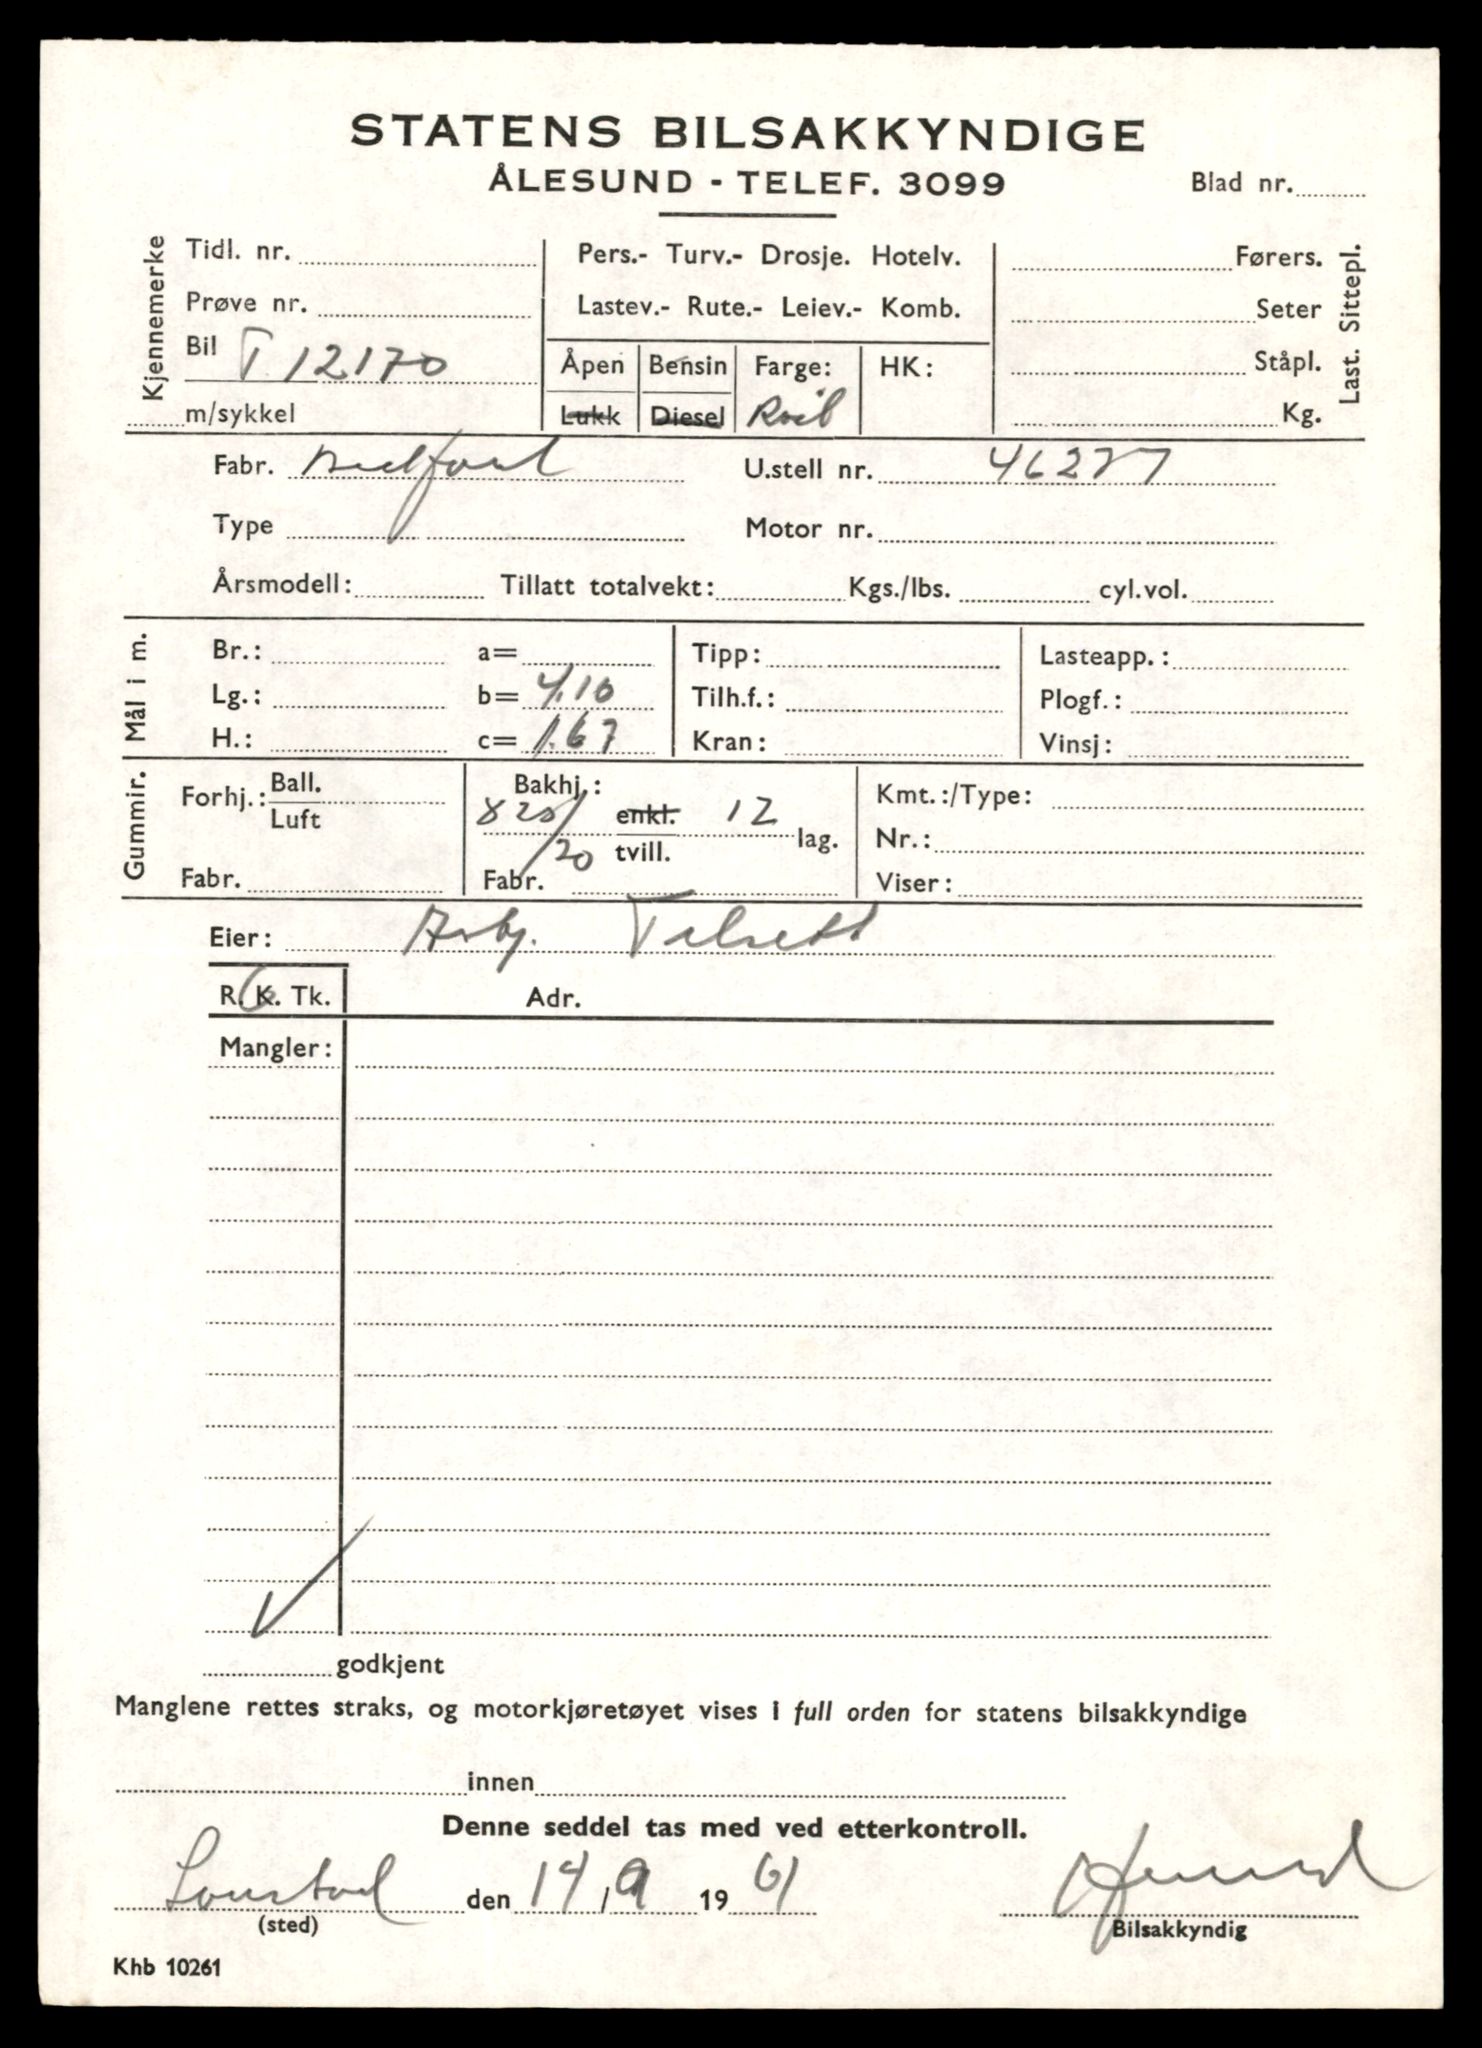 STATENS BILSAKKYNDIGE
ÅLESUND - TELEF. 3099
Blad nr.
Kjennemerke
Tidl. nr.
Prøve nr.
Bil T 12170
m/sykkel
Pers.- Turv.- Drosje. Hotelv.
Lastev.- Rute.- Leiev.- Komb.
Åpen Bensin Farge: HK:
Lukk Diesel
Førers.
Seter
Ståpl.
Kg.
Last. Sittepl.
Fabr. Bedford U.stell nr. 46277
Type Motor nr.
Årsmodell: Tillatt totalvekt: Kgs./lbs. cyl.vol.
Mål i m.
Br.: a= Tipp: Lasteapp.:
Lg.: b= 4.10 Tilh.f.: Plogf.:
H.: c= 1.67 Kran: Vinsj:
Gummir.
Forhj.: Ball. Luft
Fabr.
Bakhj.:
825/20 enkl. tvill. 12 lag.
Fabr.
Kmt.:/Type:
Nr.:
Viser:
Eier: Asbj.
R. K. Tk. Adr.
Mangler:
godkjent
Manglene rettes straks, og motorkjøretøyet vises i full orden for statens bilsakkyndige
innen
Denne seddel tas med ved etterkontroll.
den 14 / 9 19 61
(sted) Bilsakkyndig
Khb 10261